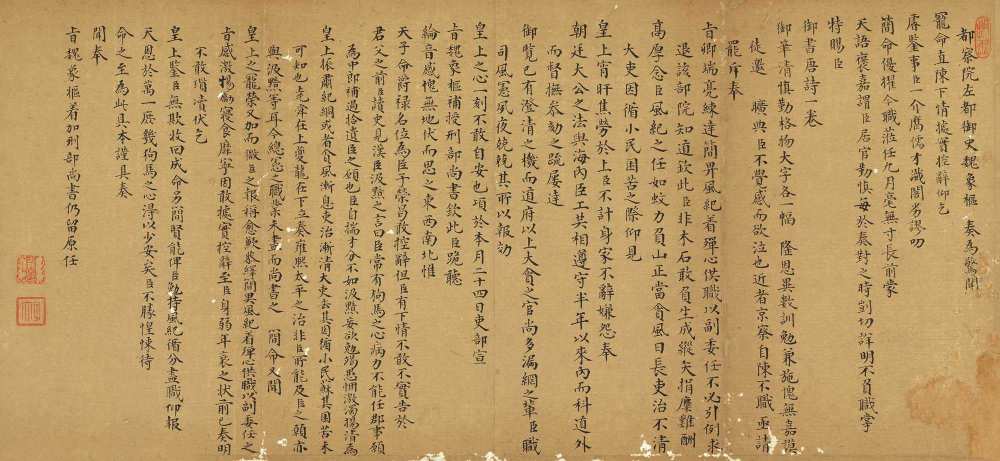 都察院左都御史魏象樞 奏為驚聞
寵命直陳下情據實控辭仰乞
睿鑒事臣一介腐儒才識闇劣謬叨
簡命優擢今職蒞任九月毫無寸長前蒙
天語褒嘉謂臣居官勤慎每於奏對之時剴切詳明不負職掌
特賜臣
御書唐詩一卷
御筆清慎勤格物大字各一幅 隆恩異數訓勉兼施愧無嘉謨
徒邀 曠典臣不覺感而欲泣也近者京察自陳不職亟請
罷斥奉
旨卿端亮練達簡畀風紀着殫心供職以副委任不必引例求
退該部院知道欽此臣非木石敢負生成縱矢捐糜難酬
高厚念臣風紀之任如蚊力負山正當貪風日長吏治不清
大吏因循小民困苦之際仰見
皇上宵旰焦勞於上臣不計身家不辭嫌怨奉
朝廷大公之法與海內臣工共相遵守半年以來內而科道外
而督撫參劾之疏屢達
御覽已有澄清之機而道府以上大貪之官尚多漏網之輩臣職
司風憲夙夜兢兢其所以報効
皇上之心一刻不敢自安也項於本月二十四日吏部宣
旨魏象樞補授刑部尚書欽此臣跪聽
綸音感愧無地伏而思之東西南北惟
天子命爵祿名位為臣子榮焉敢控辭但臣有下情不敢不實告於
君父之前臣讀史見漢臣汲黯之言曰臣常有狗馬之心病力不能任郡事願
為中郎補過拾遺臣之願也臣自揣才分不如汲黯妄欲勉竭思悃激濁揚清為
皇上振肅紀綱或者貪風漸息吏治漸清大吏去其因循小民穌其困苦未
可知也堯舜在上夔龍在下立奏雍熙太平之治非臣所能及臣之願亦
與汲黯等耳今總憲之職業未盡而尚書之 簡命又聞
皇上之寵榮又加而微臣之報稱愈歉恭繹簡畀風紀着殫心供職以副委任之
旨感激惕勵寢食靡寧因敢據實控辭至臣身弱年衰之狀前已奏明
不敢瑣瀆伏乞
皇上鑒臣無欺收回成命另簡賢能俾臣勉持風紀循分盡職仰報
天恩於萬一庶幾狗馬之心淂以少安矣臣不勝惶悚待
命之至為此具本謹具奏
聞奉
旨魏象樞着加刑部尚書仍留原任